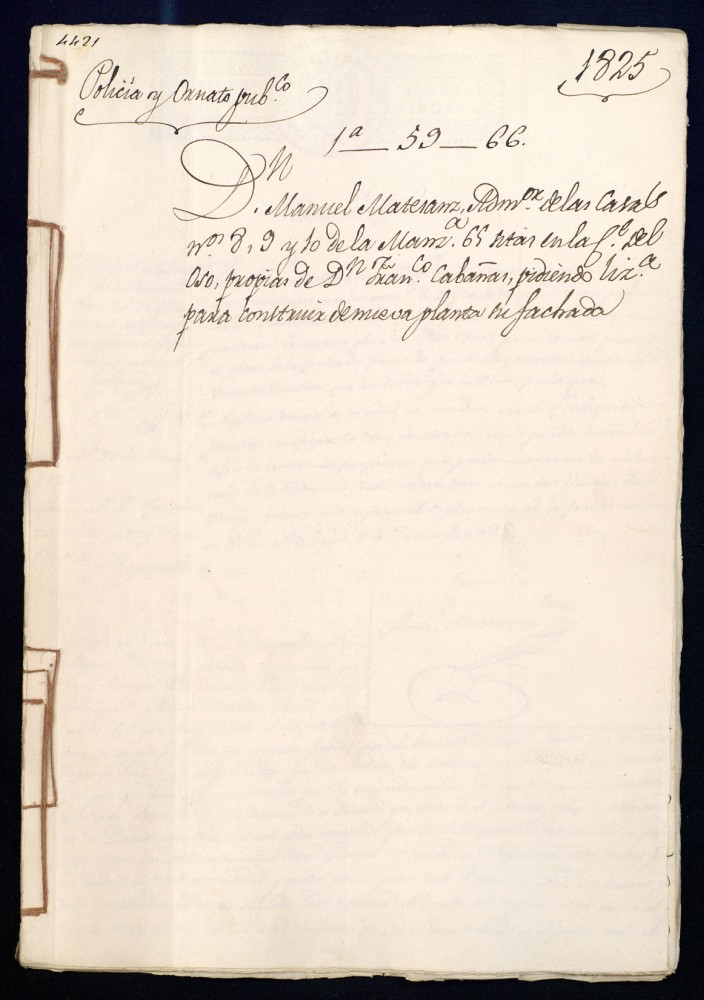 4421
1825
Policía y Ornato pub.co
1a — 59 — 66.
Dn
D. Manuel Matesanz, Admor. de las Casas
nos 8, 9 y 10 de la Manza. 65 sitas en la Ce. del
Oso, propias de Dn Franco. Cabañas, pidiendo liza.
para construir de nueva planta su fachada